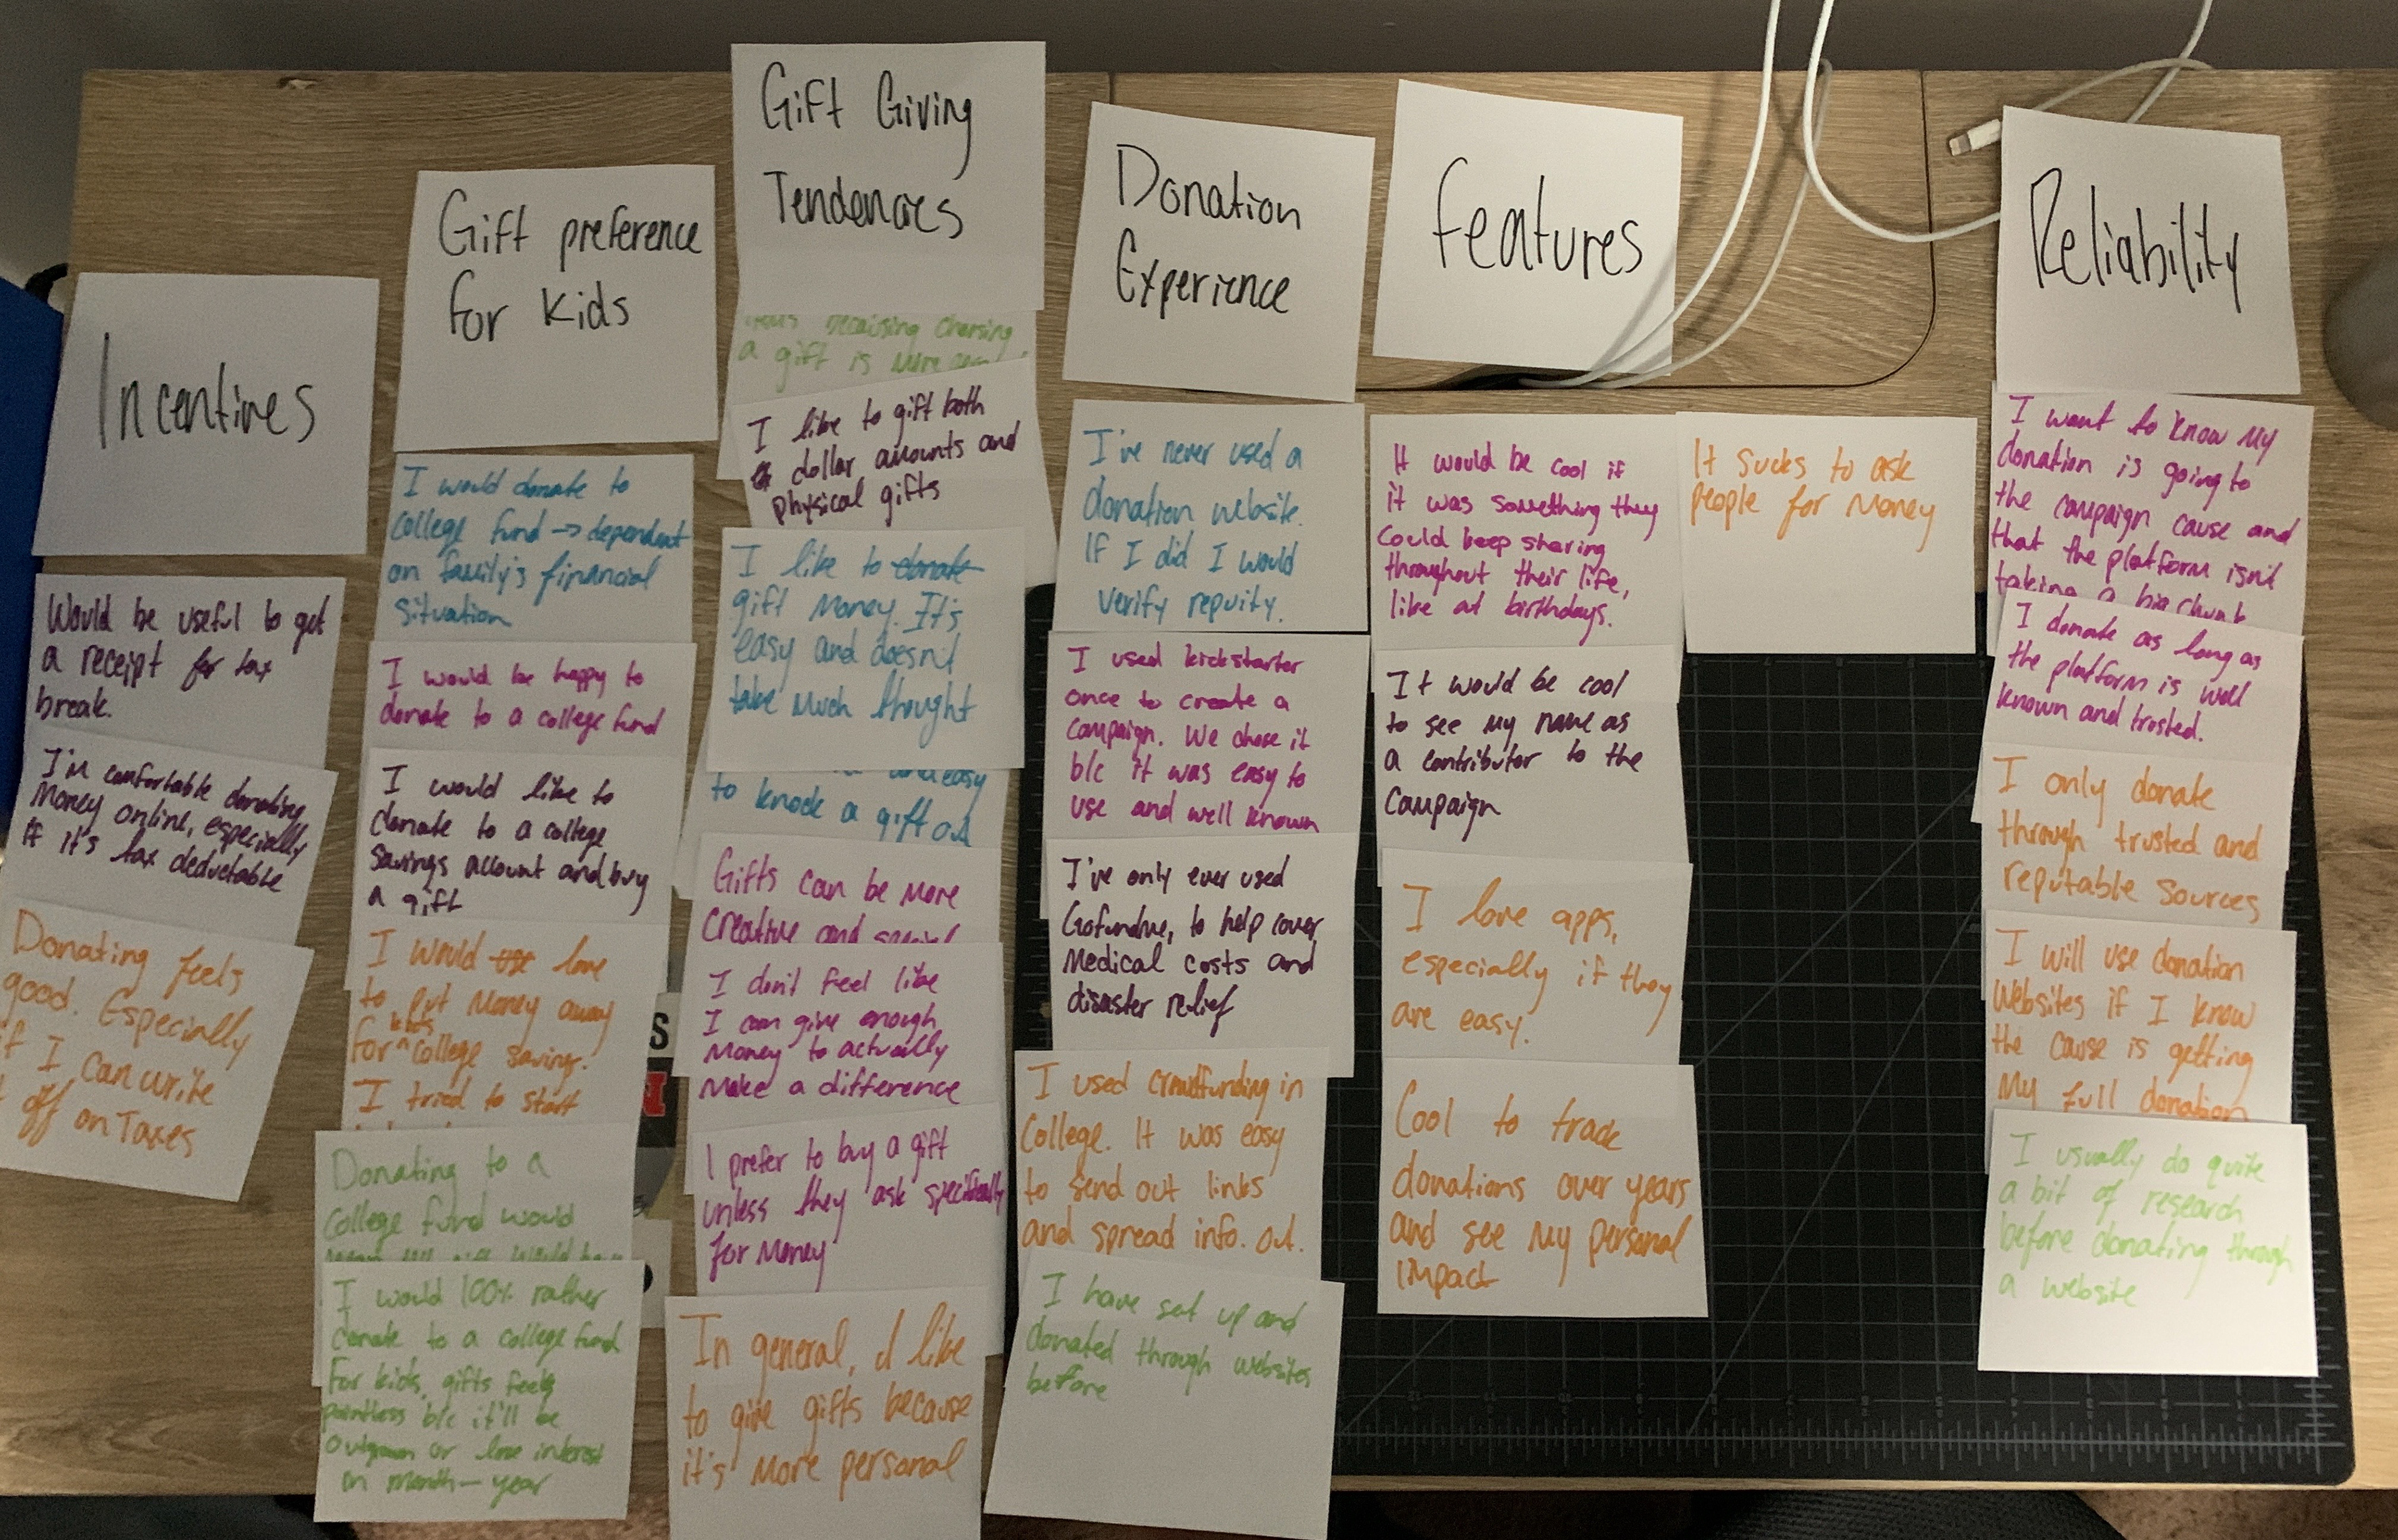 Incentives
Would be useful to get
a receipt for tax
break.
I'm comfortable donating
money online, especially
if it's tax deductable
Donating feels
good. Especially
if I can write
off on Taxes
Gift preference
for kids
I would donate to
college fund → dependent
on family's financial
situation
I would be happy to
donate to a college fund
I would like to
donate to a college
savings account and buy
a gift
I would use love
to put money away
for kids college savings.
I tried to start
Donating to a
college fund would
I would 100% rather
donate to a college fund
for kids, gifts feels
pointless b/c it'll be
outgrown or lose interest
in month - year
Gift Giving
Tendencies
choosing
a gift is more
I like to gift both
dollar amounts and
physical gifts
I like to donate
gift money. It's
easy and doesn't
take much thought
and easy
to knock a gift out
Gifts can be more
creative and special
I don't feel like
I can give enough
money to actually
make a difference
I prefer to buy a gift
unless they ask specifically
for money
In general, I like
to give gifts because
it's more personal
Donation
Experience
I've never used a
donation website.
If I did I would
verify repuity.
I used kickstarter
once to create a
campaign. We chose it
b/c it was easy to
use and well known
I've only ever used
Gofundme, to help cover
medical costs and
disaster relief
I used crowdfunding in
college. It was easy
to send out links
and spread info. out.
I have set up and
donated through websites
before
features
It would be cool if
it was something they
could keep sharing
throughout their life,
like at birthdays.
It would be cool
to see my name as
a contributor to the
campaign
I love apps,
especially if they
are easy.
Cool to track
donations over years
and see my personal
impact
It sucks to ask
people for money
Reliability
I want to know my
donation is going to
the campaign cause and
that the platform isn't
taking a big chunk
I donate as long as
the platform is well
known and trusted.
I only donate
through trusted and
reputable sources
I will use donation
websites if I know
the cause is getting
my full donation
I usually do quite
a bit of research
before donating through
a website